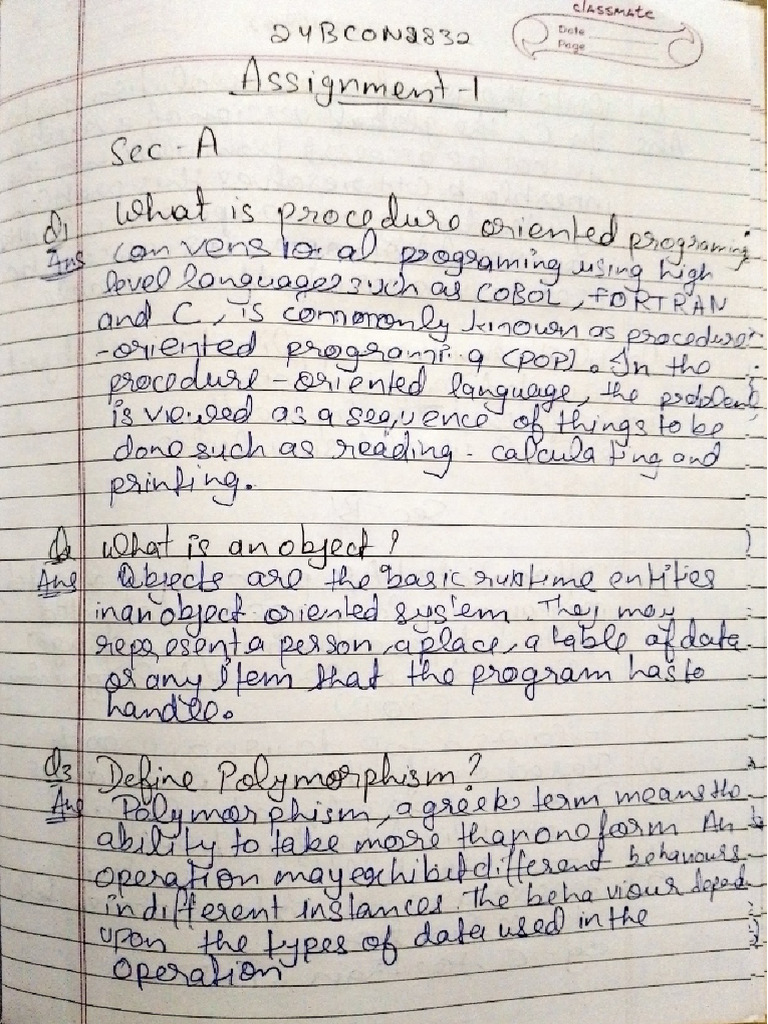 classmate
Date
Page
24BCON2832
Assignment-1
Sec-A
Q1 What is procedure oriented programing
Ans Convensional programing using high
level languages such as COBOL, FORTRAN
and C, is commonly known as procedure
-oriented programing (POP). In the
procedure-oriented language, the problem
is viewed as a sequence of things to be
done such as reading - calculating and
printing.
Q2 What is an object?
Ans Objects are the basic runtime entities
in an object oriented system. They may
represent a person, a place, a table of data
or any item that the program has to
handle.
Q3 Define Polymorphism?
Ans Polymorphism, a greek term means the
ability to take more than one form An
operation may exhibit different behaviours
in different instances. The behaviour depend
upon the types of data used in the
operation